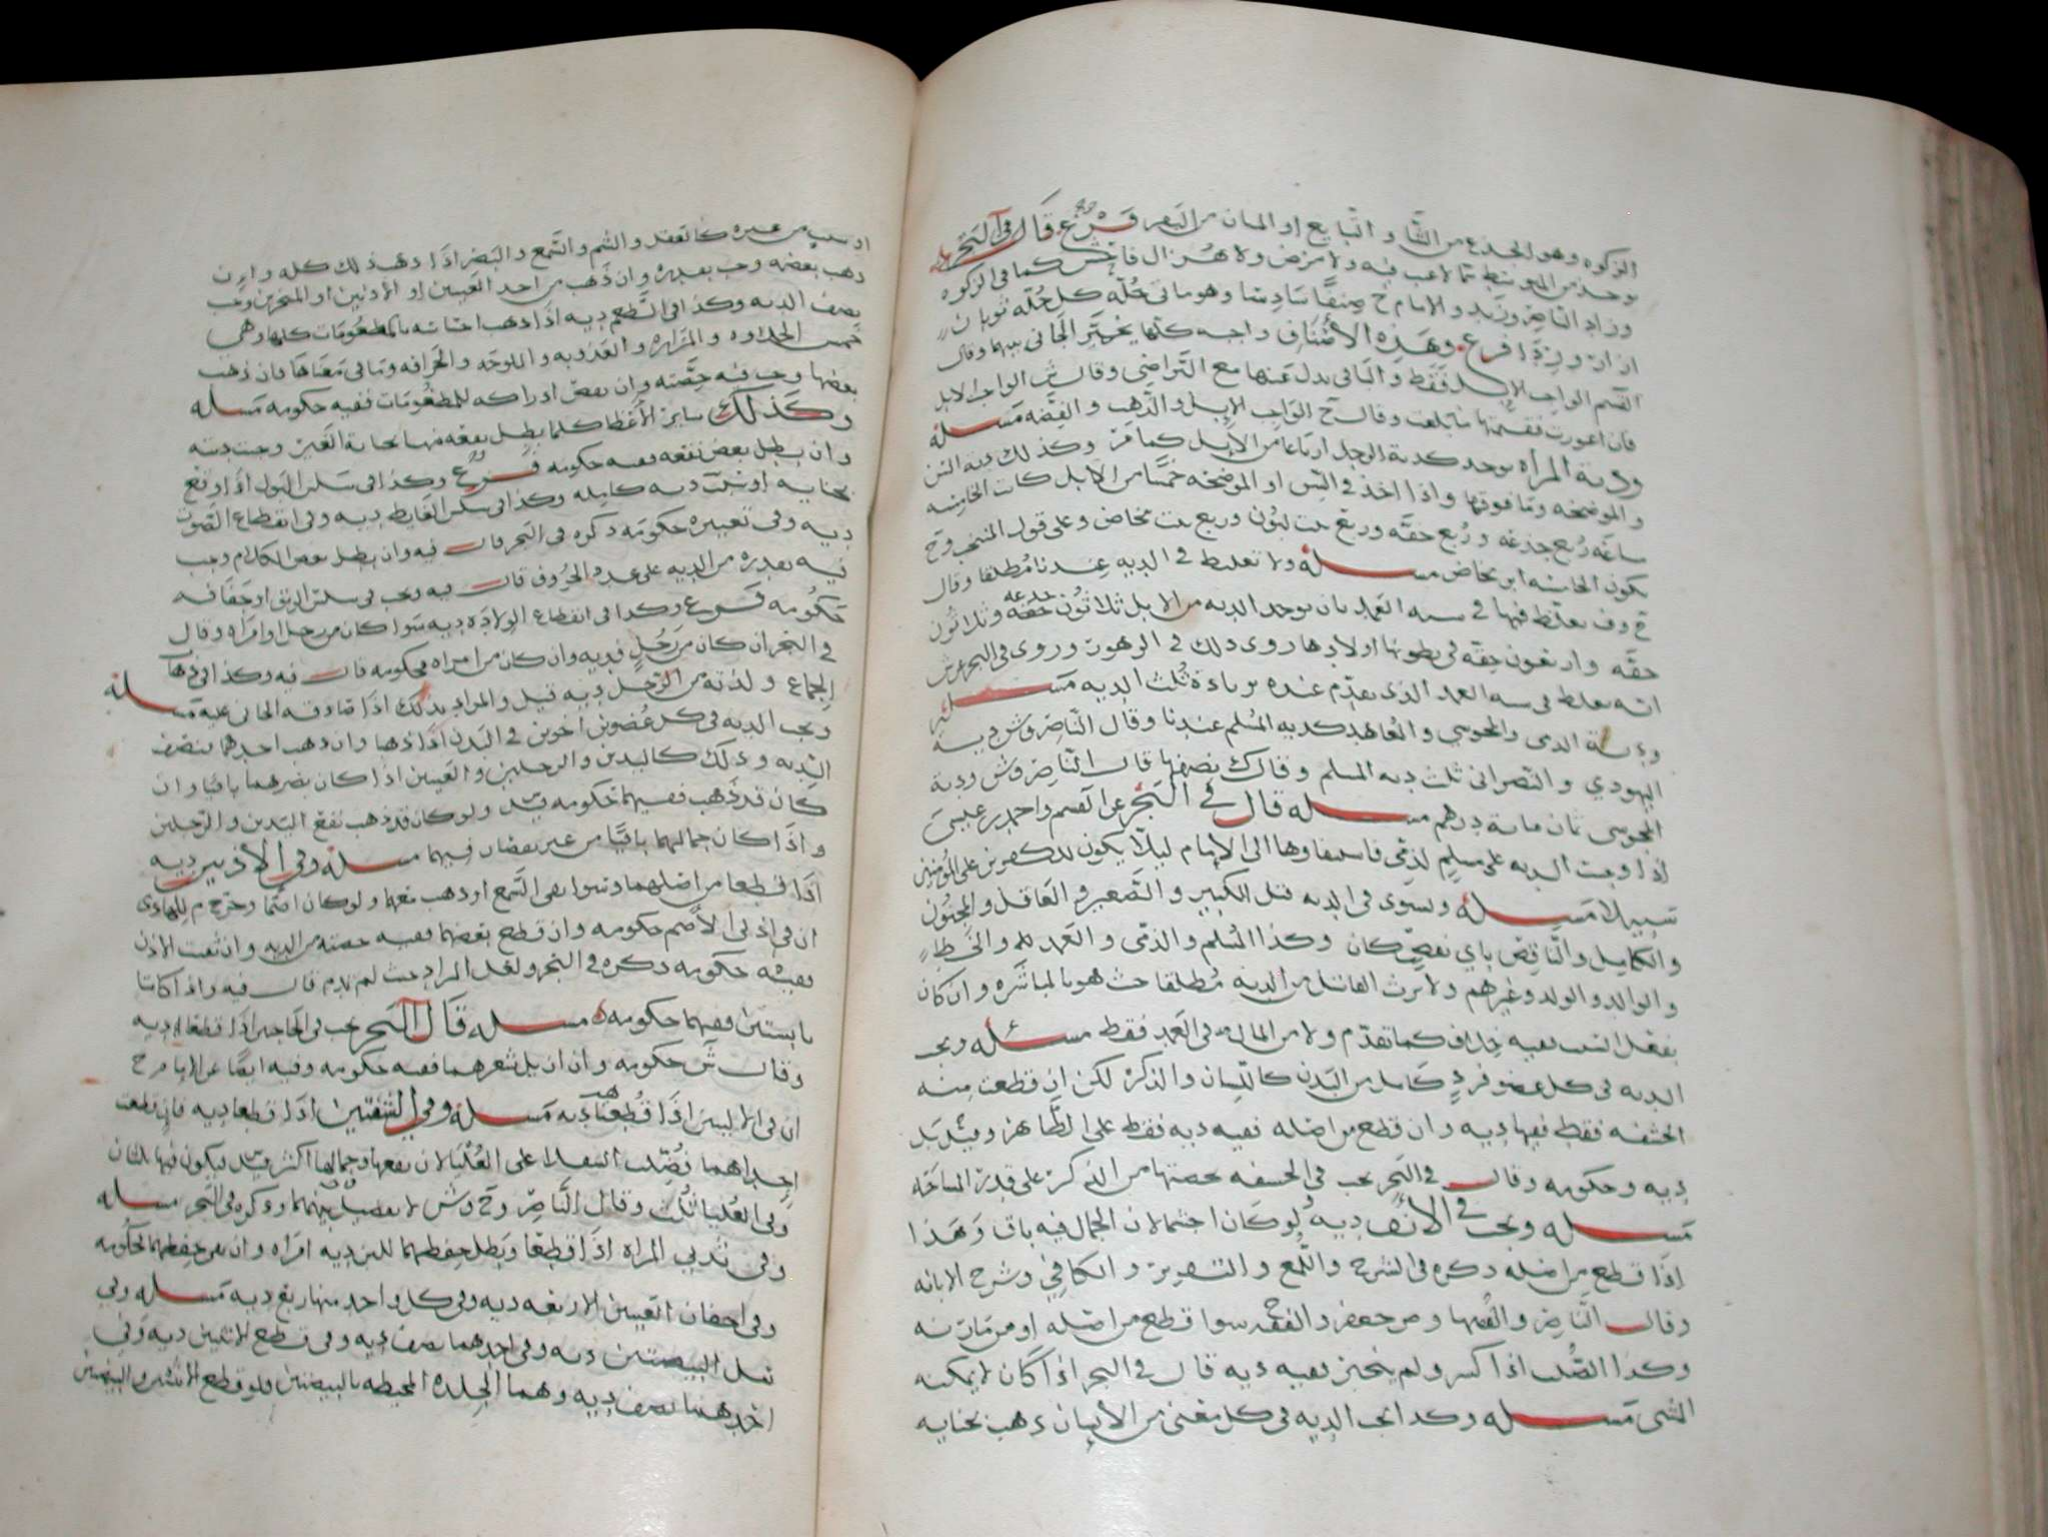 الزكوه وهو الجذع من الضأن و التبايع او المسان من البقر فرع قال في البحر
يوخذ من المتوسط مما لا عيب فيه ولا مرض ولا هزال فاحش كما في الزكوه
وزاد الناصر وزيد والامام ح صنفا سادسا وهو مائتي حله كل حله ثوبان
ازار وردا فرع وهذه الأصناف واجبه كلها يخير الجاني بينها وقال
القسم الواجب الابل فقط والباقي بدل عنها مع التراضي وقال ش الواجب الابل
فان اعوزت فقيمتها ما بلغت وقال ح الواجب الابل والذهب والفضه مسله
ودية المرأه يوخذ كدية الرجل ارباعا من الابل كما مر وكذلك دية السن
والموضحه وما فوقها واذا اخذ في السن او الموضحه خمسا من الابل كانت الخامسه
ربع جذعه وربع حقه وربع بنت لبون وربع بنت مخاض وعلى قول المنتخب وح
يكون الخامسه ابن مخاض مسله ولا تغليط في الديه عندنا مطلقا وقال
فيها في شبه العمد بان يوخذ الديه من الابل ثلاثون حقه وثلاثون
جذعه
حقه واربعون خلفه في بطونها اولادها روى ذلك في الزهور وروى في البحر عن ش
انه يغلط في شبه العمد الذي تقدم عنده بزيادة ثلث الديه مسله
ودية الذمي والمجوسي والمعاهد كدية المسلم عندنا وقال الناصر وش دية
اليهودي والنصراني ثلث دية المسلم وقال ك نصفها قال الناصر وش ودية
المجوسي ثمان ماية درهم مسله قال في البحر عن القسم واحمد بن عيسى
اذا وجبت الديه على مسلم لذمي فاستيفاوها الى الامام ليلا يكون للكفرين على المؤمنين
سبيلا مسله ويستوى في الديه قتل الكبير والصغير والعاقل والمجنون
والكامل والناقص باي نقص كان وكذا المسلم والذمي والعمد والخطا
والوالد والولد وغيرهم ولا يرث القاتل من الديه مطلقا حيث هو بالمباشره وان كان
بفعل السبب ففيه خلاف كما تقدم ولا من المال في العمد فقط مسله ويجب
الديه في كل عضو فرد كامل من البدن كاللسان والذكر لكن ان قطعت منه
الحشفه فقط ففيها ديه وان قطع من اصله ففيه ديه فقط على الظاهر وقيل بل
ديه وحكومه وقال في البحر يجب في الحشفه بحصتها من الذكر على قدر المساحه
مسله ويجب في الأنف ديه ولو كان اخشما لان الجمال فيه باق وهذا
اذا قطع من اصله ذكره في الشرح واللمع والتقرير والكافي وشرح الابانه
وقال الناصر والفقها وص جعفر والفقيه ح سوا قطع من اصله او من مارنه
وكذا الصلب اذا كسر ولم ينجبر ففيه ديه قال في البحر اذا كان لا يمكنه
المشي مسله وكذا تجب الديه في كل معنى من الأنسان ذهب بجنايه
او سبب من غيره كالعقل والشم والسمع والبصر اذا ذهب ذلك كله وان
ذهب بعضه وجب بقدره وان ذهب من احد العينين او الأذنين او المنخرين وجب
نصف الديه وكذا في الطعم ديه اذا ذهب احساسه بالمطعومات كلها وهي
خمس الحلاوه والمراره والعذوبه والملوحه والحرافه وما في معناها فان ذهب
بعضها وجب فيه حصته وان نقص ادراكه للمطعومات ففيه حكومه مسله
وكذلك ساير الأعضا كلما بطل نفعه منها بجناية الغير وجبت ديته
وان بطل بعض نفعه ففيه حكومه فرع وكذا في سلس البول اذا وقع
بجنايه او سبب ديه كامله وكذا في سلس الغايط ديه وفي انقطاع الصوت
ديه وفي تغييره حكومه ذكره في البحر قال فيه وان بطل بعض الكلام وجب
فيه بقدره من الديه على عدد الحروف قال فيه ويجب في سلس الريق او جفافه
حكومه فرع وكذا في انقطاع الولاده ديه سوا كان من رجل او امراه وقال
في البحر ان كان من رجل فديه وان كان من امراه فحكومه قال فيه وكذا في ذهاب
الجماع ولذته من الرجل ديه قيل والمراد بذلك اذا صادقه الجاني عليه مسله
ويجب الديه في كل عضوين اخوين في البدن اذا ذهبا وان ذهب احدهما فنصف
الديه وذلك كاليدين والرجلين والعينين اذا كان بصرهما باقيا وان
كان قد ذهب ففيهما حكومه ولو كان قد ذهب نفع اليدين والرجلين
واذا كان جمالهما باقيا من غير نقصان فيهما مسله وفي الأذنين ديه
اذا قطعا من اصلهما وسوا بقى السمع او ذهب معهما ولو كان اصما وخرج م بالله للهادي
ان في اذني الأصم حكومه وان قطع بعضها ففيه حصته من الديه وان ثقبت الأذن
ففيه حكومه ذكره في البحر ولعل المراد حيث لم قال فيه واذا كانتا
يابستين ففيهما حكومه مسله قال في البحر يجب في الحاجبين اذا قطعا ديه
وقال ش حكومه وان ازيل شعرهما ففيه حكومه وفيه ايضا عن الامام ح
ان في الأليتين اذا قطعتا ديه مسله وفي الشفتين اذا قطعا ديه فان قطعت
احداهما فضلت السفلا على العليا لان نفعها وجمالها اكثر فيكون فيها ثلثان
وفي العليا ثلث وقال الناصر وح وش لا تفضيل بينهما ذكره في البحر مسله
وفي ثديي المراة اذا قطعا وبطل حفظهما للبن ديه امراه وان بقي حفظهما فحكومه
وفي اجفان العينين الاربعه ديه وفي كل واحد منها ربع ديه مسله وفي
سل البيضتين ديه وفي احدهما نصف ديه وفي قطع الانثيين ديه وفي
احدهما نصف ديه وهما الجلده المحيطه بالبيضتين فلو قطع الانثيين والبيضتين